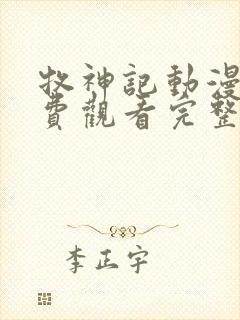 牧神記動漫
費觀看完整
李正宇